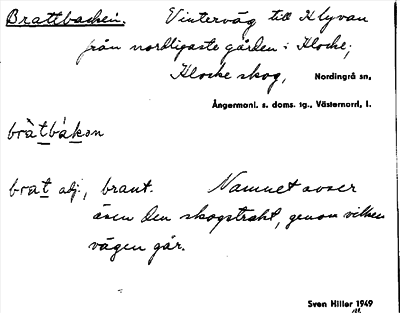 Brattbacken. Vinterväg till Klyvan
från nordligaste gården i Klocke;
Klocke skog, Nordingrå sn,
Ångermanl. s. doms. tg., Västernorrl. l.
bràtbákən
brat adj., brant. Namnet avser
även den skogstrakt, genom vilken
vägen går.
Sven Hiller 1949